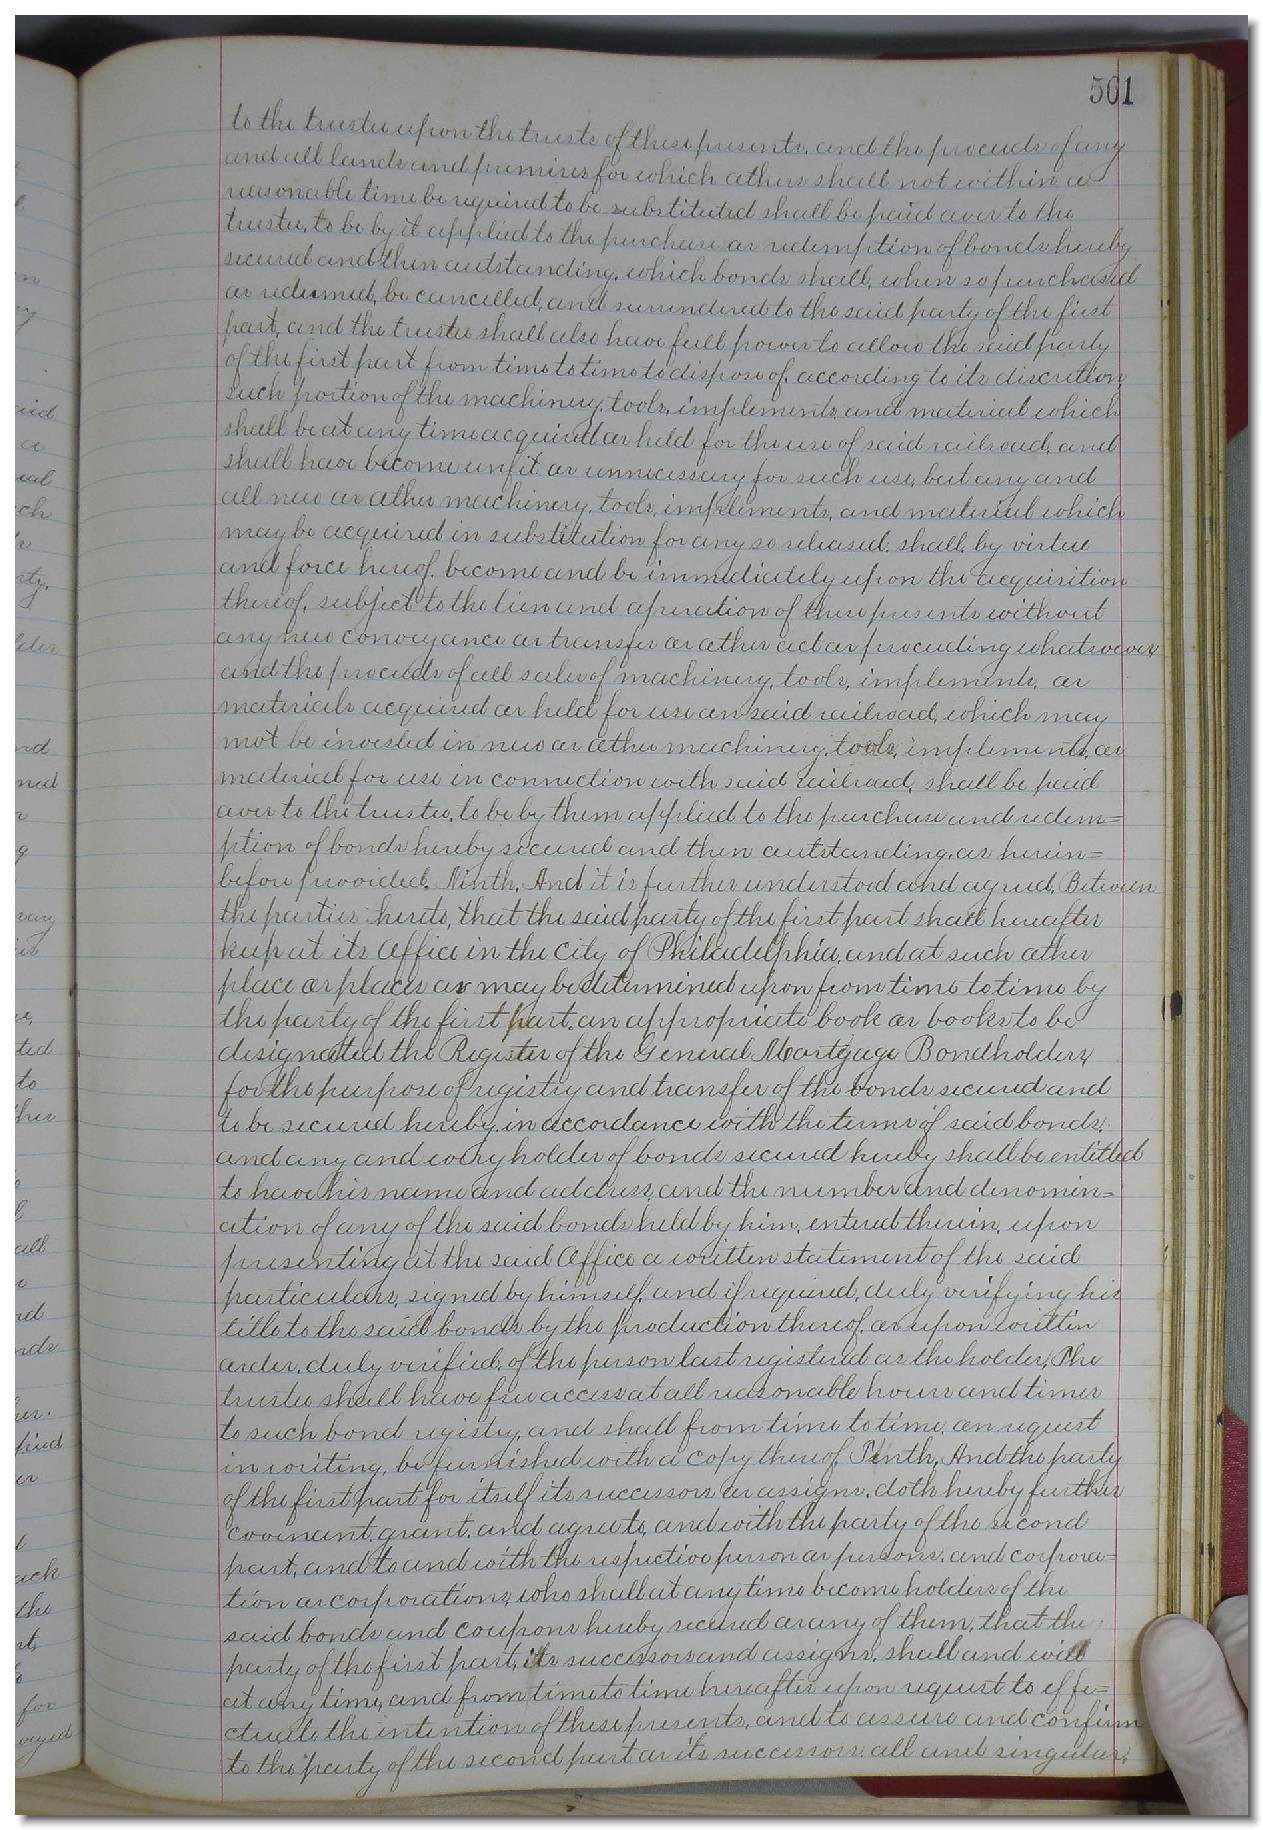 561
to the trustee upon the trusts of these presents, and the proceeds of any
and all lands and premises for which others shall not within a
reasonable time be required to be substituted shall be paid over to the
trustee, to be by it applied to the purchase or redemption of bonds hereby
secured and then outstanding, which bonds shall, when so purchased
or redeemed, be cancelled, and surrendered to the said party of the first
part, and the trustee shall also have full power to allow the said party
of the first part from time to time to dispose of, according to its discretion
such portion of the machinery, tools, implements and material which
shall be at any time acquired or held for the use of said railroad, and
shall have become unfit or unnecessary for such use, but any and
all new or other machinery, tools, implements, and material which
may be acquired in substitution for any so released, shall, by virtue
and force hereof, become and be immediately upon the acquisition
thereof, subject to the lien and operation of these presents without
any new conveyance or transfer or other act or proceeding whatsoever
and the proceeds of all sales of machinery, tools, implements, or
materials acquired or held for use on said railroad, which may
not be invested in new or other machinery, tools, implements, or
material for use in connection with said railroad, shall be paid
over to the trustee, to be by them applied to the purchase and redem=
ption of bonds hereby secured and then outstanding, as herein=
before provided. Ninth, And it is further understood and agreed, Between
the parties hereto, that the said party of the first part shall hereafter
keep at its office in the city of Philadelphia, and at such other
place or places as may be determined upon from time to time by
the party of the first part, an appropriate book or books to be
designated the Register of the General Mortgage Bondholders,
for the purpose of registry and transfer of the bonds secured and
to be secured hereby, in accordance with the terms of said bonds,
and any and every holder of bonds secured hereby shall be entitled
to have his name and address, and the number and denomin=
ation of any of the said bonds held by him, entered therein, upon
presenting at the said office a written statement of the said
particulars, signed by himself, and if required, duly verifying his
title to the said bonds by the production thereof, or upon written
order, duly verified, of the person last registered as the holder, The
trustee shall have free access at all reasonable hours and times
to such bond registry, and shall from time to time, on request
in writing, be furnished with a copy thereof Tenth, And the party
of the first part for itself its successors or assigns, doth hereby further
covenant, grant, and agree to, and with the party of the second
part, and to and with the respective person or persons, and corpora=
tion or corporations, who shall at any time become holders of the
said bonds and coupons hereby secured or any of them, that the
party of the first part, its successors and assigns, shall and will
at any time, and from time to time hereafter upon request to effe=
ctuate the intention of these presents, and to assure and confirm
to the party of the second part or its successors, all and singular,